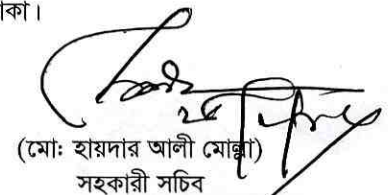 কা।
(মো: হায়দার আলী মোল্লা)
সহকারী সচিব